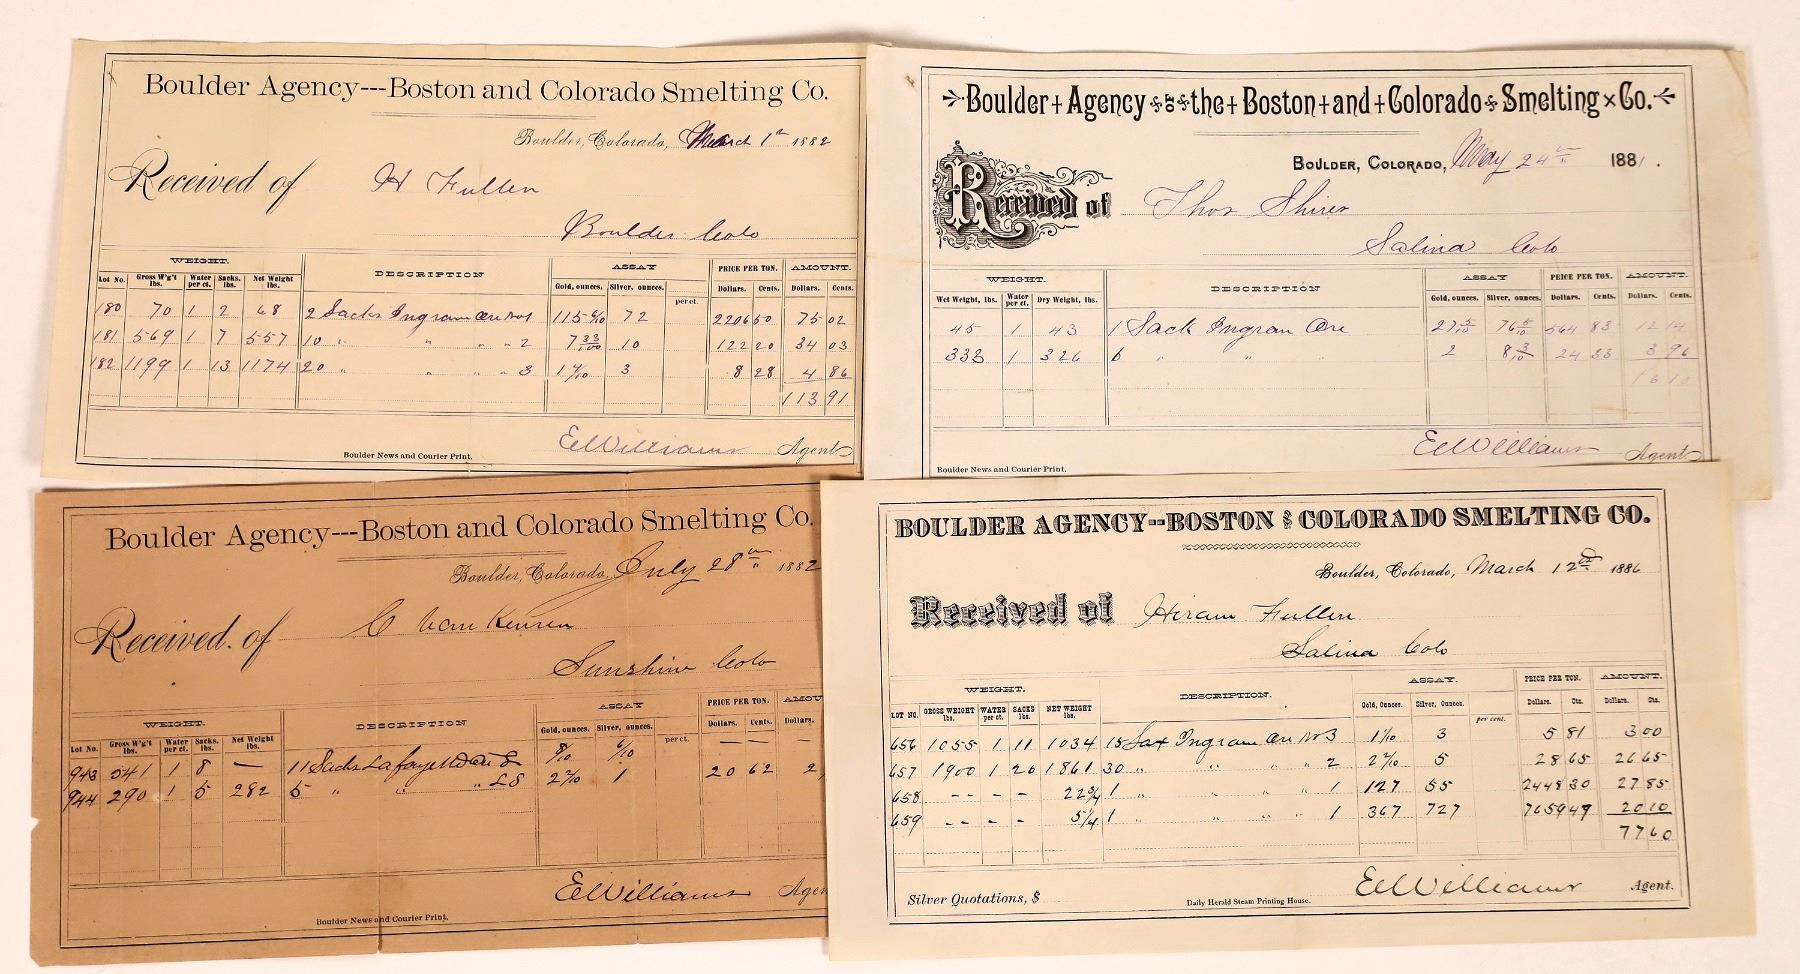 Boulder Agency---Boston and Colorado Smelting Co.
Boulder, Colorado, March 1st 1882
Received of H Fullen
Boulder Colo
WEIGHT. DESCRIPTION ASSAY PRICE PER TON. AMOUNT.
Lot No. Gross W'g't lbs. Water per ct. Sacks. Net Weight lbs. Gold, ounces. Silver, ounces. per ct. Dollars. Cents. Dollars. Cents.
180 70 1 2 68 2 Sacks Ingram Ore No 1 115 6/10 72 2206 50 75 02
181 569 1 7 557 10 " " " " 2 7 33/100 10 122 20 34 03
182 1199 1 13 1174 20 " " " " 3 1 3 8 28 4 86
113 91
E E Williams Agent
Boulder News and Courier Print.
Boulder Agency of the Boston and Colorado Smelting Co.
BOULDER, COLORADO, May 24th 1881.
Received of Thos Shires
Salina Colo
WEIGHT. DESCRIPTION ASSAY PRICE PER TON. AMOUNT.
Wet Weight, lbs. Water per ct. Dry Weight, lbs. Gold, ounces. Silver, ounces. Dollars. Cents. Dollars. Cents.
45 1 43 1 Sack Ingram Ore 27 5/10 76 5/10 564 83 12 14
333 1 326 6 " " " 2 8 3/10 24 33 3 96
16 10
E E Williams Agent
Boulder News and Courier Print.
Boulder Agency---Boston and Colorado Smelting Co.
Boulder, Colorado, July 28th 1882
Received of C Van Keuren
Sunshine Colo
WEIGHT. DESCRIPTION ASSAY PRICE PER TON. AMOU
Lot No. Gross W'g't lbs. Water per ct. Sacks. lbs. Net Weight lbs. Gold, ounces. Silver, ounces. per ct. Dollars. Cents. Dollars.
943 541 1 8 — 11 Sacks Lafayette 8/10 6/10 — — —
944 290 1 5 282 5 " " " LS 2 2/10 1 20 62 2
E E Williams Agen
Boulder News and Courier Print.
BOULDER AGENCY--BOSTON & COLORADO SMELTING CO.
Boulder, Colorado, March 12nd 1886
Received of Hiram Fullen
Salina Colo
WEIGHT. DESCRIPTION. ASSAY. PRICE PER TON. AMOUNT.
LOT NO. GROSS WEIGHT lbs. WATER per ct. SACKS lbs. NET WEIGHT lbs. Gold, Ounces. Silver, Ounces. per cent. Dollars. Cts. Dollars. Cts.
656 1055 1 11 1034 15 Sax Ingram Ore No 3 1 1/10 3 5 81 3 00
657 1900 1 26 1861 30 " " " " 2 2 5 28 65 26 65
658 - - - - 22 3/4 1 " " " " 1 127 55 2448 30 27 85
659 - - - - 5 1/4 1 " " " 1 367 727 7659 49 20 10
77 60
E E Williams Agent.
Silver Quotations, $
Daily Herald Steam Printing House.